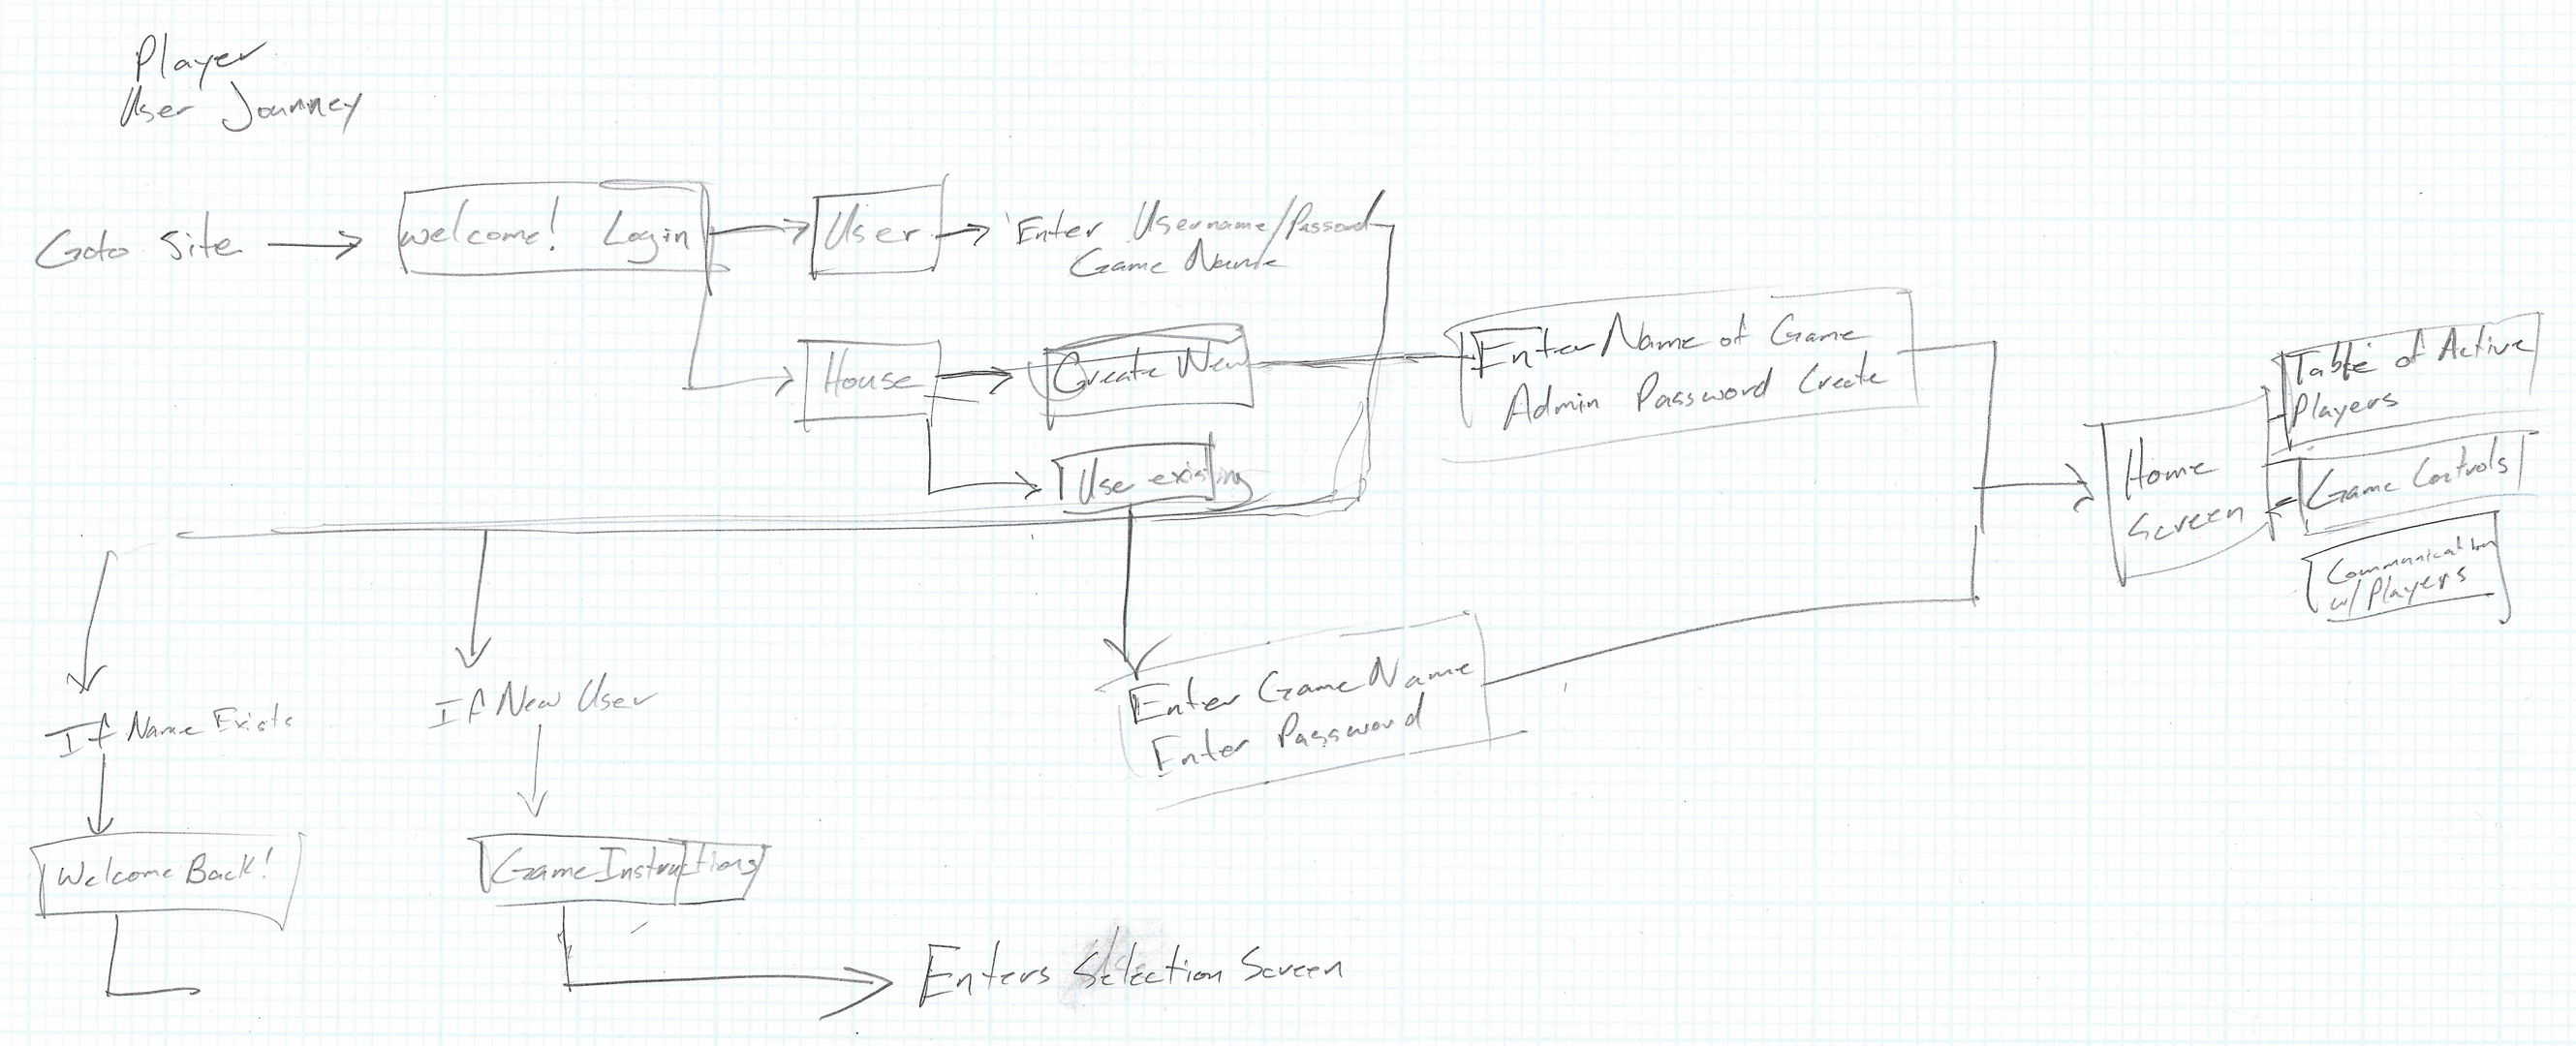 Player
User Journey
Goto Site
Welcome! Login
User
Enter Username/Password
Game Name
House
Create New
Use existing
Enter Name of Game
Admin Password Create
Home
Screen
Table of Active
Players
Game Controls
Communication
w/ Players
If Name Exists
If New User
Enter Game Name
Enter Password
Welcome Back!
Game Instructions
Enters Selection Screen